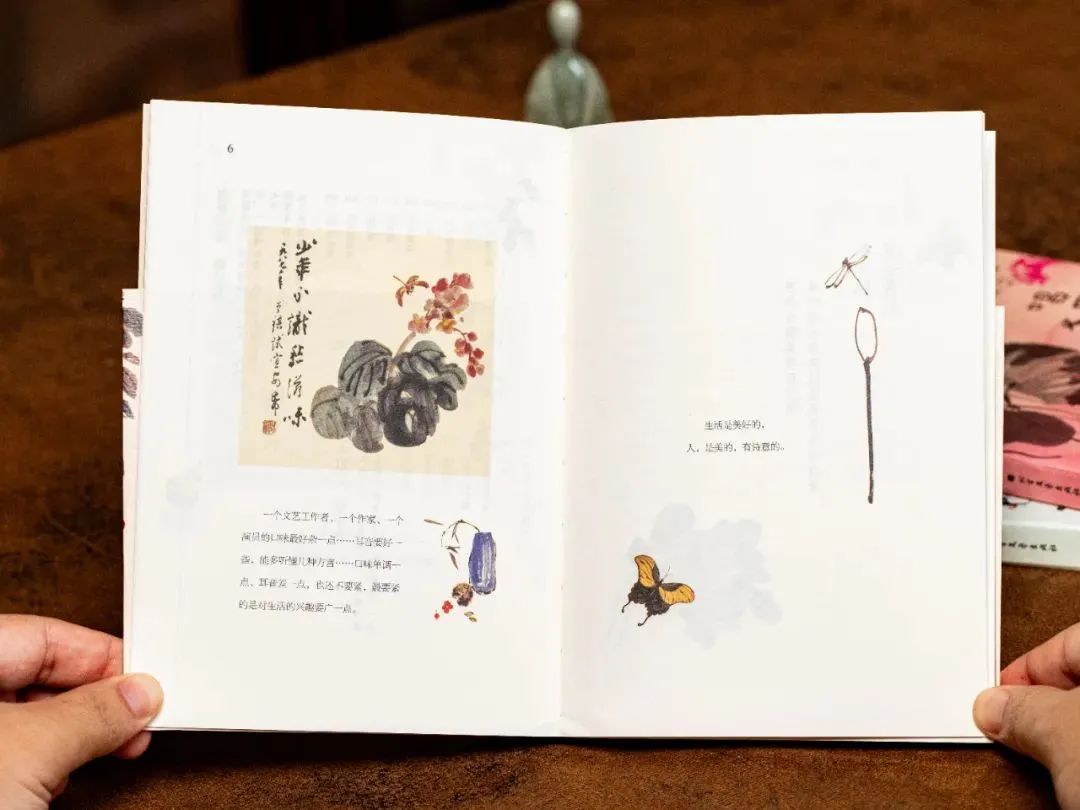 6
少年不識愁滋味
曾祺試宣
一个文艺工作者、一个作家、一个
演员的口味最好杂一点……耳音要好一
些，能多听懂几种方言……口味单调一
点、耳音差一点，也还不要紧，最要紧
的是对生活的兴趣要广一点。
生活是美好的，
人，是美的，有诗意的。